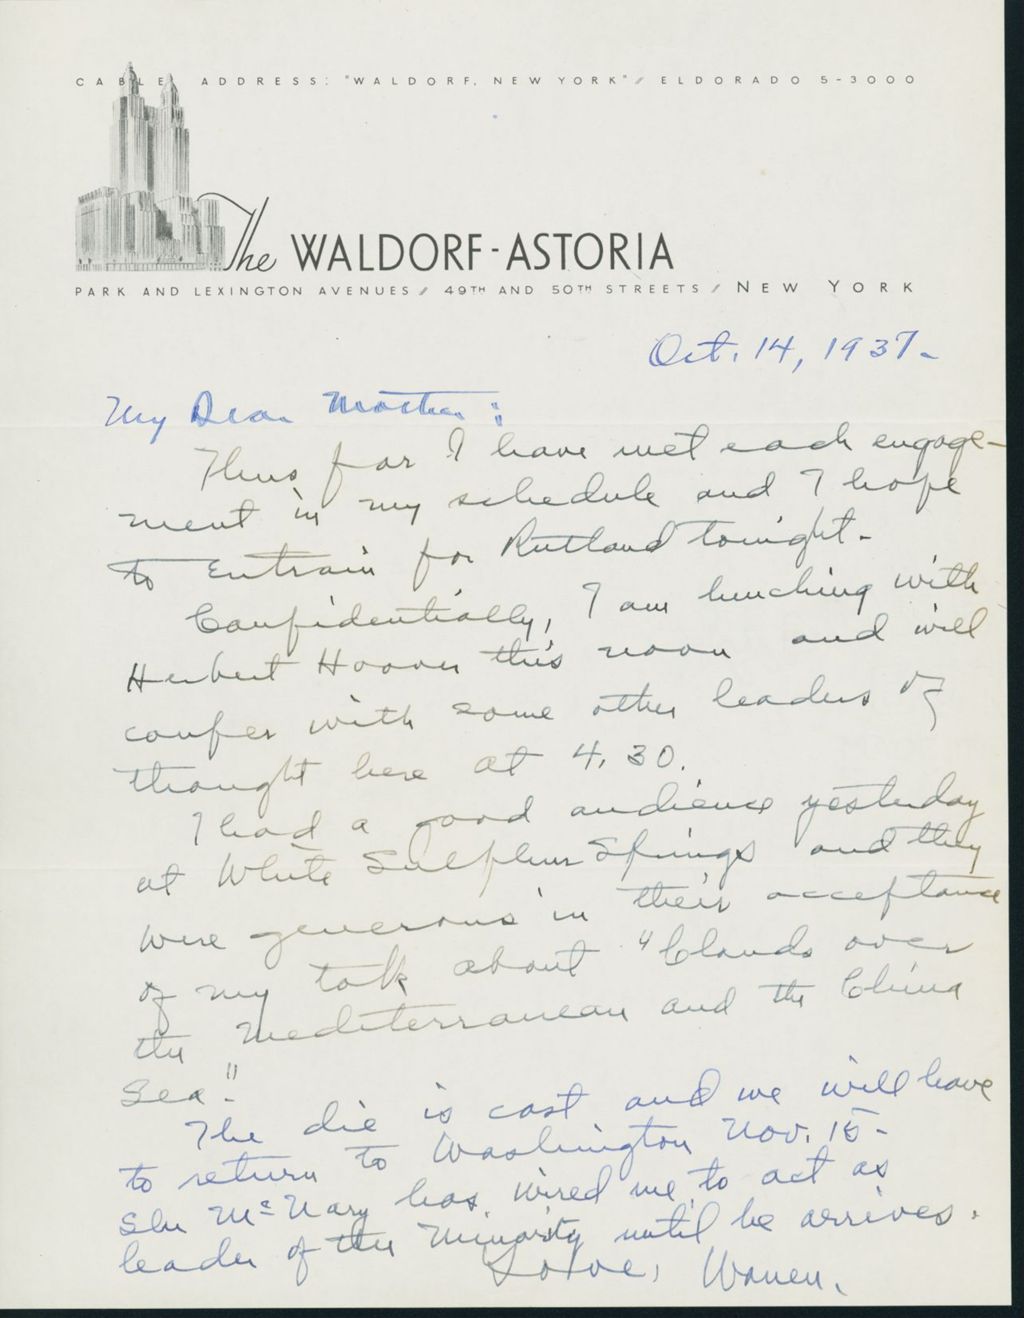 CABLE ADDRESS: "WALDORF, NEW YORK" // ELDORADO 5-3000
The WALDORF-ASTORIA
PARK AND LEXINGTON AVENUES // 49TH AND 50TH STREETS // NEW YORK
Oct. 14, 1937-
My Dear Mother:
Thus far I have met each engage-
ment in my schedule and I hope
to Entrain for Rutland tonight-
Confidentially, I am lunching with
Herbert Hoover this noon and will
confer with some other leaders of
thought here at 4.30.
I had a good audience yesterday
at White Sulphur Springs and they
were generous in their acceptance
of my talk about "Clouds over
the Mediterranean and the China
Sea".
The die is cast and we will have
to return to Washington Nov. 15-
Sen McNary has wired me to act as
leader of the Minority until he arrives.
Love, Warren.